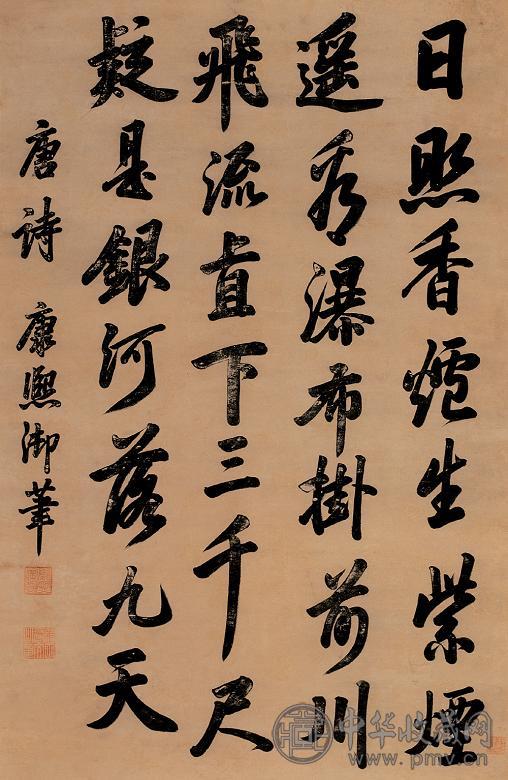 日照香爐生紫煙
遥看瀑布掛前川
飛流直下三千尺
疑是銀河落九天
唐詩 康熙御筆
中华收藏网
www.pmv.cn